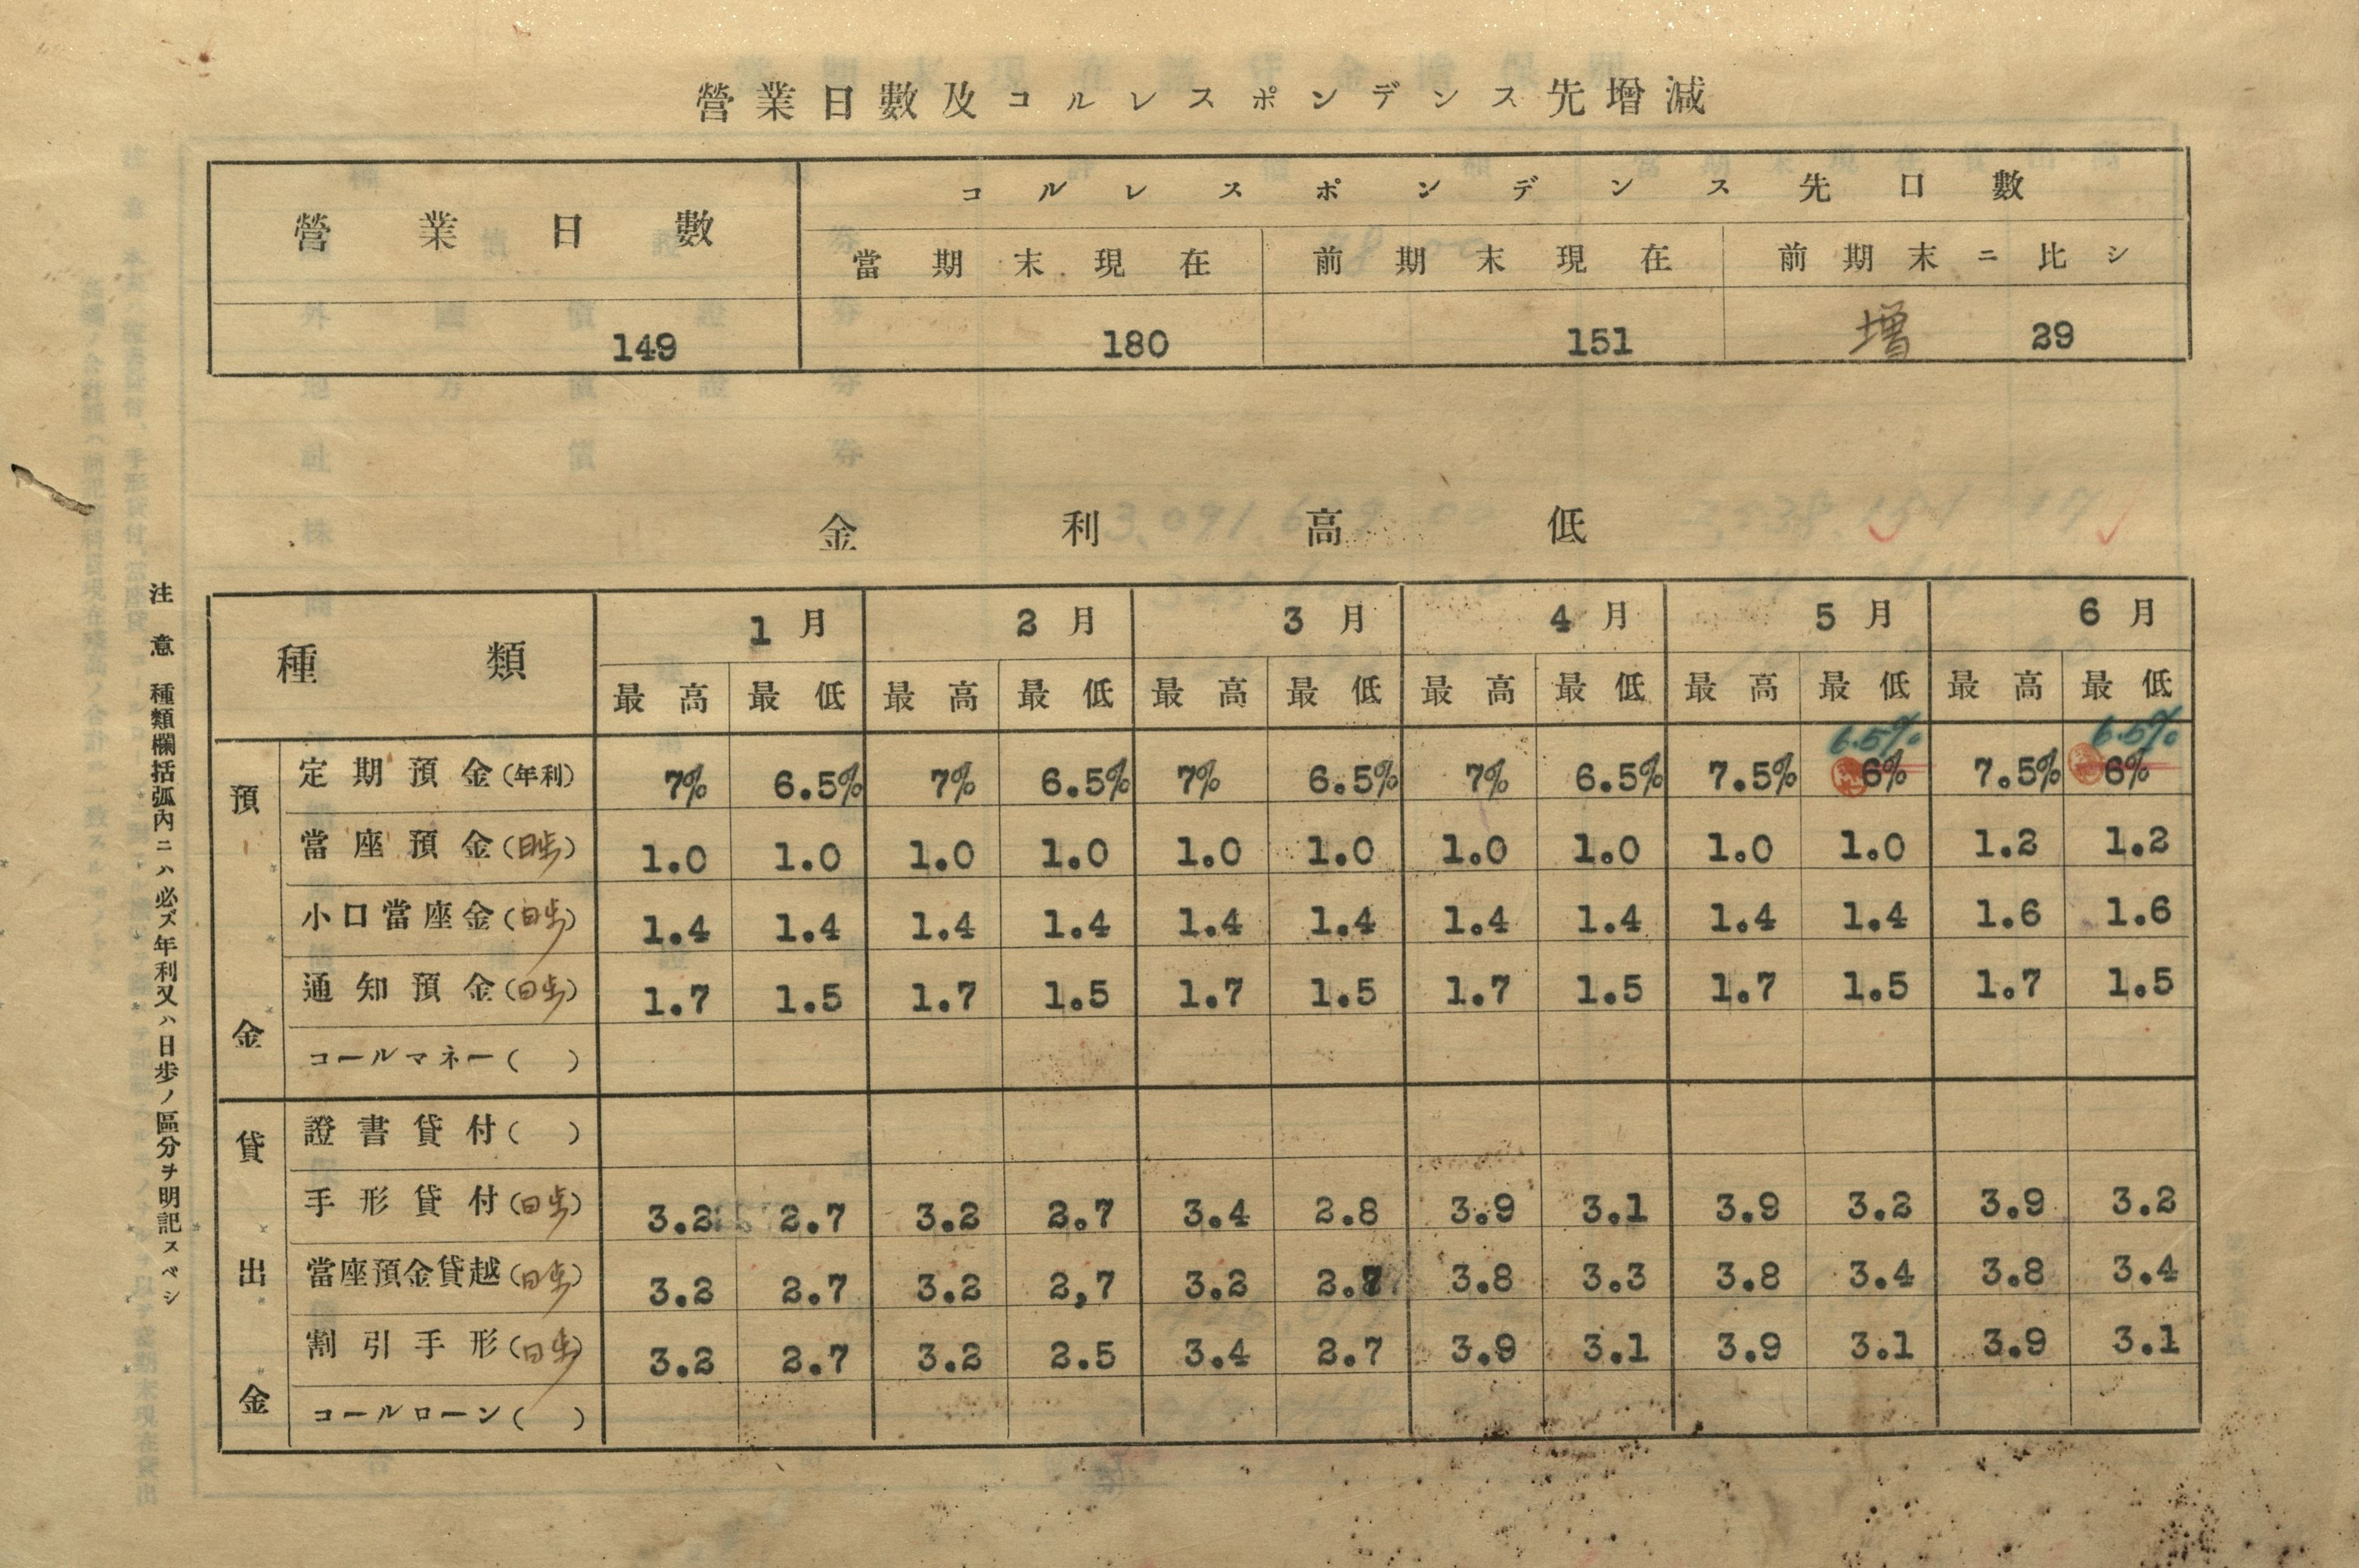 營業日數及コルレスポンデンス先增減
營業日數 コルレスポンデンス先口數
當期末現在 前期末現在 前期末ニ比シ
149 180 151 増 29
金利高低
種類 1月 2月 3月 4月 5月 6月
最高 最低 最高 最低 最高 最低 最高 最低 最高 最低 最高 最低
6.5% 6.5%
預金
定期預金(年利) 7% 6.5% 7% 6.5% 7% 6.5% 7% 6.5% 7.5% 6% 7.5% 6%
當座預金(日歩) 1.0 1.0 1.0 1.0 1.0 1.0 1.0 1.0 1.0 1.0 1.2 1.2
小口當座金(日歩) 1.4 1.4 1.4 1.4 1.4 1.4 1.4 1.4 1.4 1.4 1.6 1.6
通知預金(日歩) 1.7 1.5 1.7 1.5 1.7 1.5 1.7 1.5 1.7 1.5 1.7 1.5
コールマネー( )
貸出金
證書貸付( )
手形貸付(日歩) 3.2 2.7 3.2 2.7 3.4 2.8 3.9 3.1 3.9 3.2 3.9 3.2
當座預金貸越(日歩) 3.2 2.7 3.2 2,7 3.2 2.7 3.8 3.3 3.8 3.4 3.8 3.4
割引手形(日歩) 3.2 2.7 3.2 2.5 3.4 2.7 3.9 3.1 3.9 3.1 3.9 3.1
コールローン( )
注意 種類欄括弧內ニハ必ズ年利又ハ日步ノ區分ヲ明記スベシ